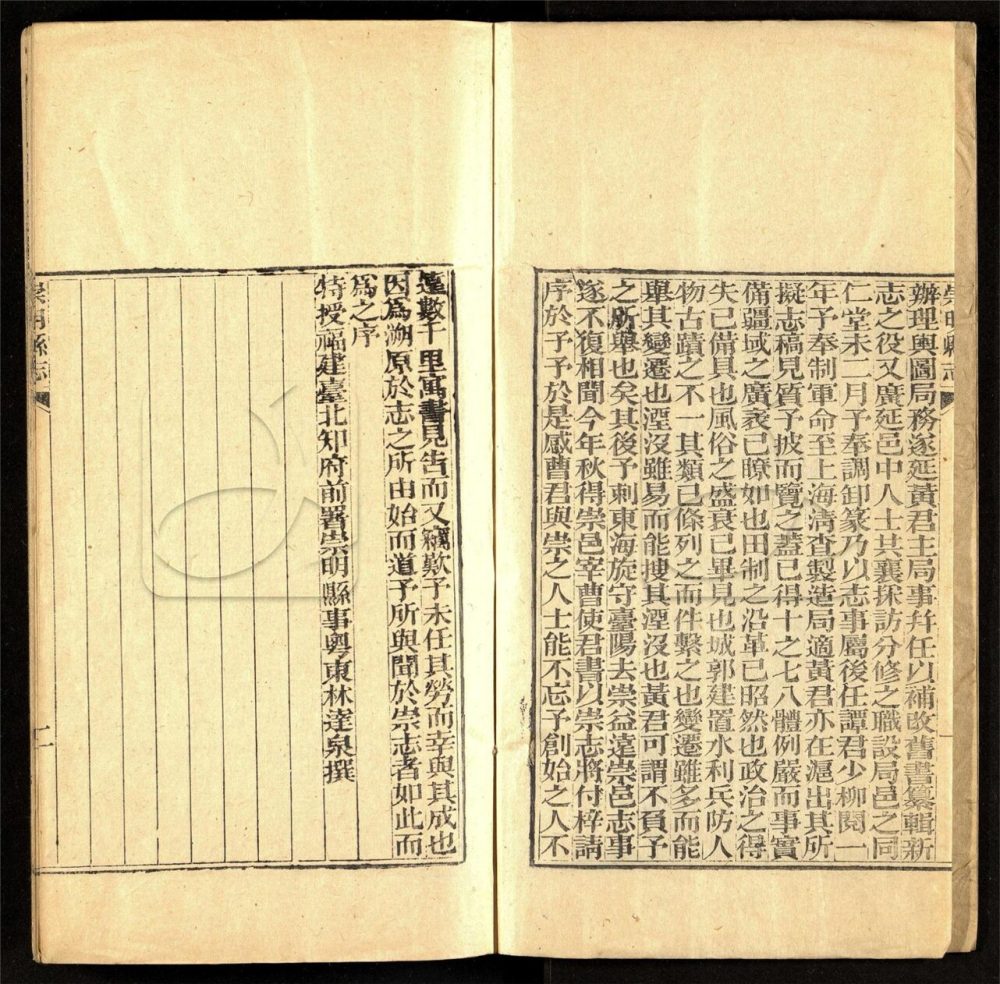 崇明縣志
辦理輿圖局務遂延黃君主局事幷任以補改舊書纂輯新
志之役又廣延邑中人士共襄採訪分修之職設局邑之同
仁堂未二月予奉調卸篆乃以志事屬後任譚君少柳閱一
年予奉制軍命至上海清查製造局適黃君亦在滬出其所
擬志稿見質予披而覽之蓋已得十之七八體例嚴而事實
備疆域之廣袤已瞭如也田制之沿革已昭然也政治之得
失已備具也風俗之盛衰已畢見也城郭建置水利兵防人
物古蹟之不一其類已條列之而件繫之也變遷雖多而能
舉其變遷也湮沒雖易而能搜其湮沒也黃君可謂不負予
之所舉也矣其後予刺東海旋守臺陽去崇益遠崇邑志事
遂不復相聞今年秋得崇邑宰曹使君書以崇志將付梓請
序於予予於是感曹君與崇之人士能不忘予創始之人不
一
遠數千里寓書見告而又竊歎予未任其勞而幸與其成也
因爲溯原於志之所由始而道予所與聞於崇志者如此而
爲之序
特授福建臺北知府前署崇明縣事粵東林達泉撰
崇明縣志
二